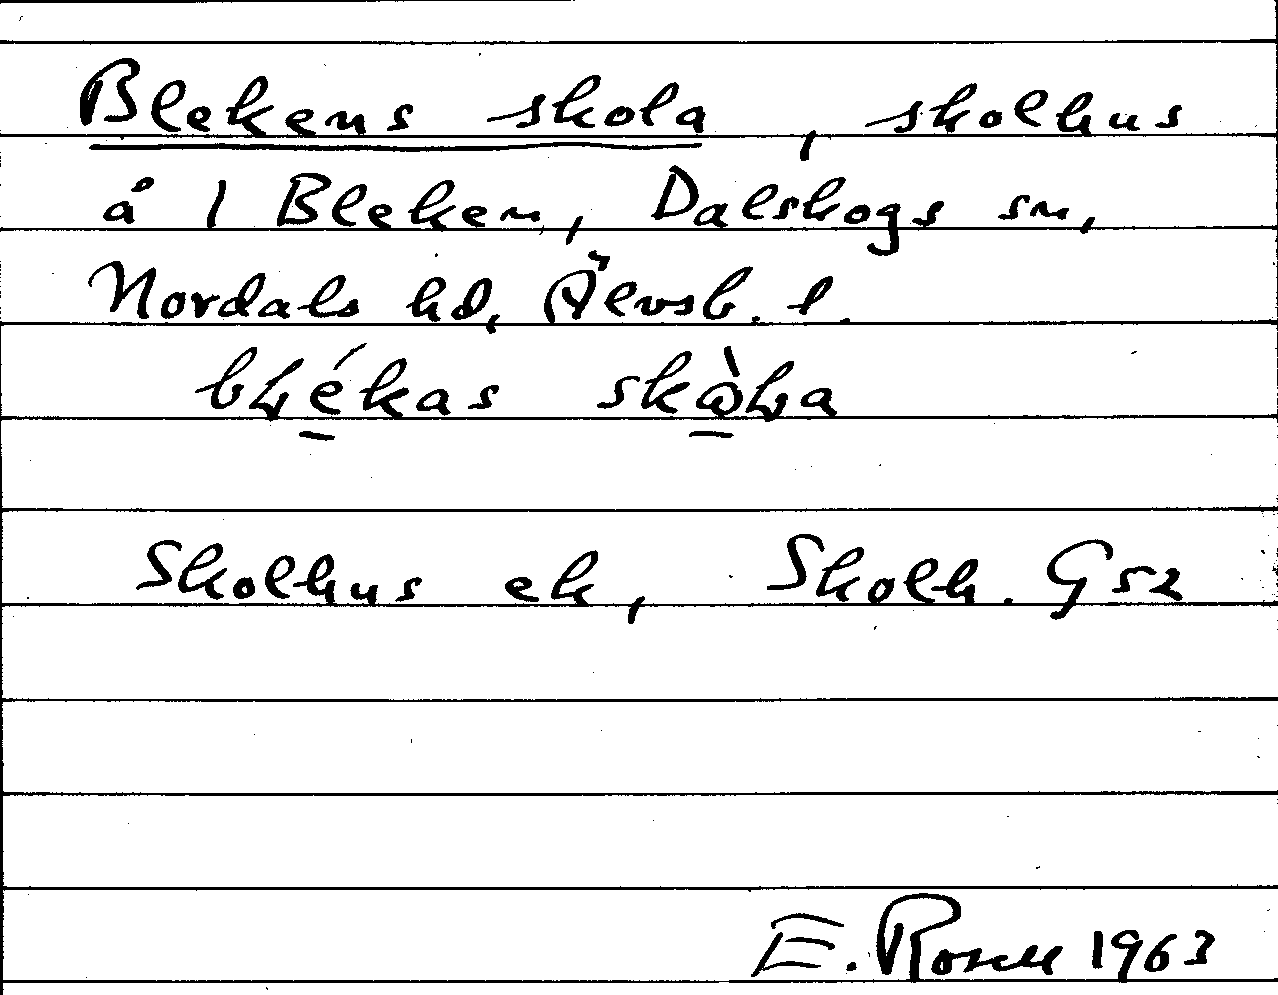 Blekens skola, skolhus
å 1 Bleken, Dalskogs sn,
Nordals hd, Älvsb. l.
bḷékas skὼḷa
Skolhus ek, Skolh. G52
E. Rosell 1963